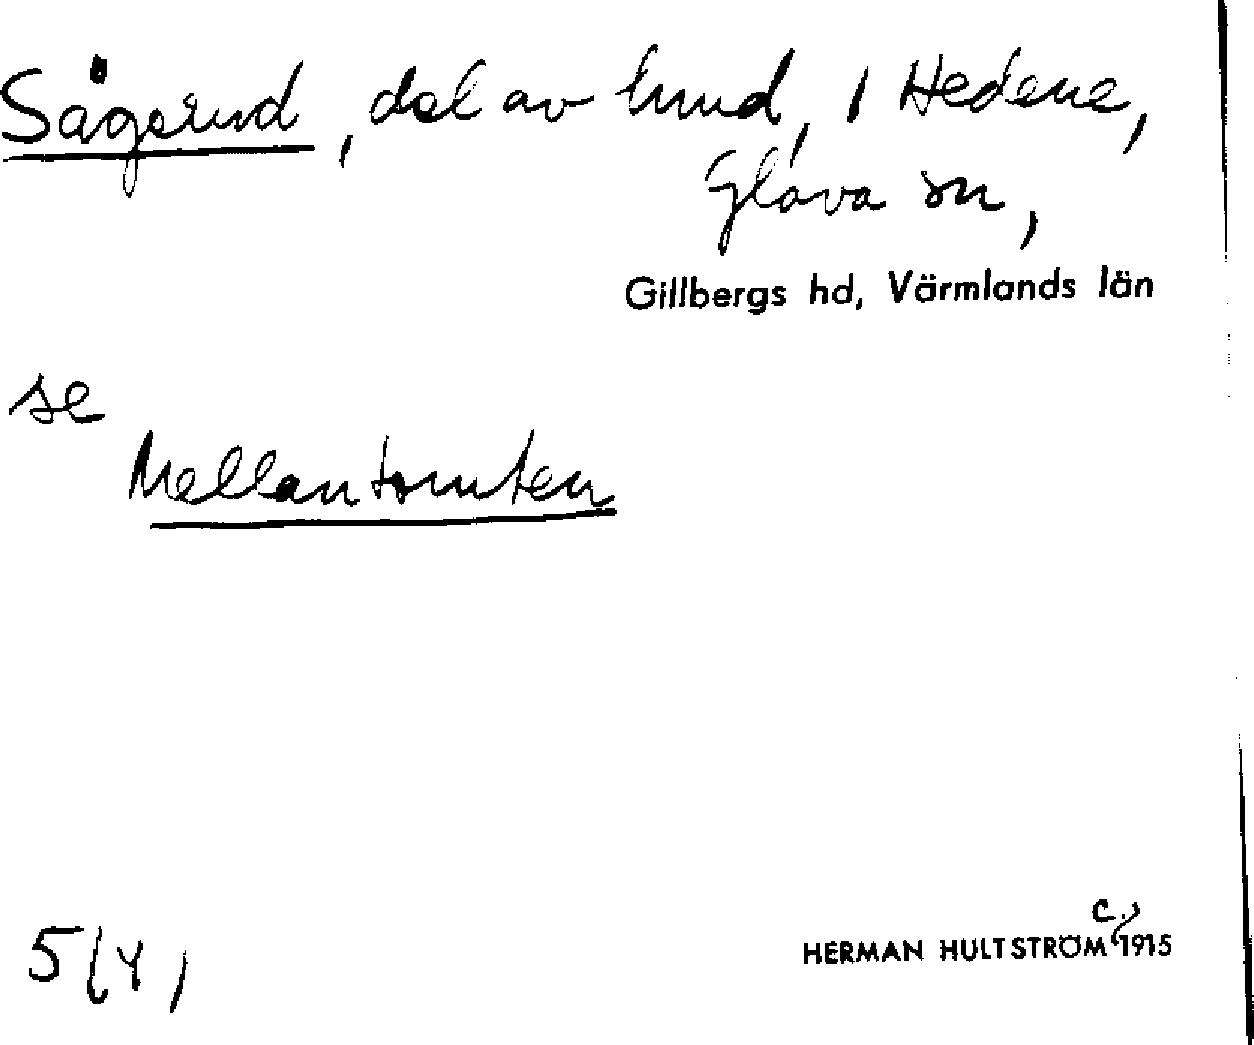 Sågerud, del av hmd, i Hedene,
Glava sn,
Gillbergs hd, Värmlands län
se
Mellantomten
5(4)
c.
HERMAN HULTSTRÖM 1915